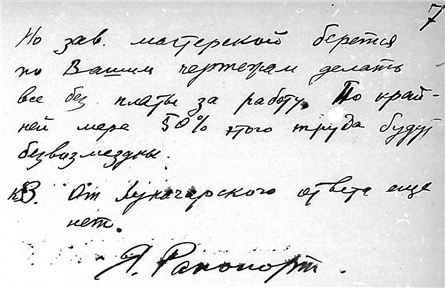 7
Но зав. мастерской берется
по Вашим чертежам делать
все без платы за работу. По край-
ней мере 50% этого труда будут
безвозмездны.
3. От Луначарского ответа еще
нет.
Я. Рапопорт.